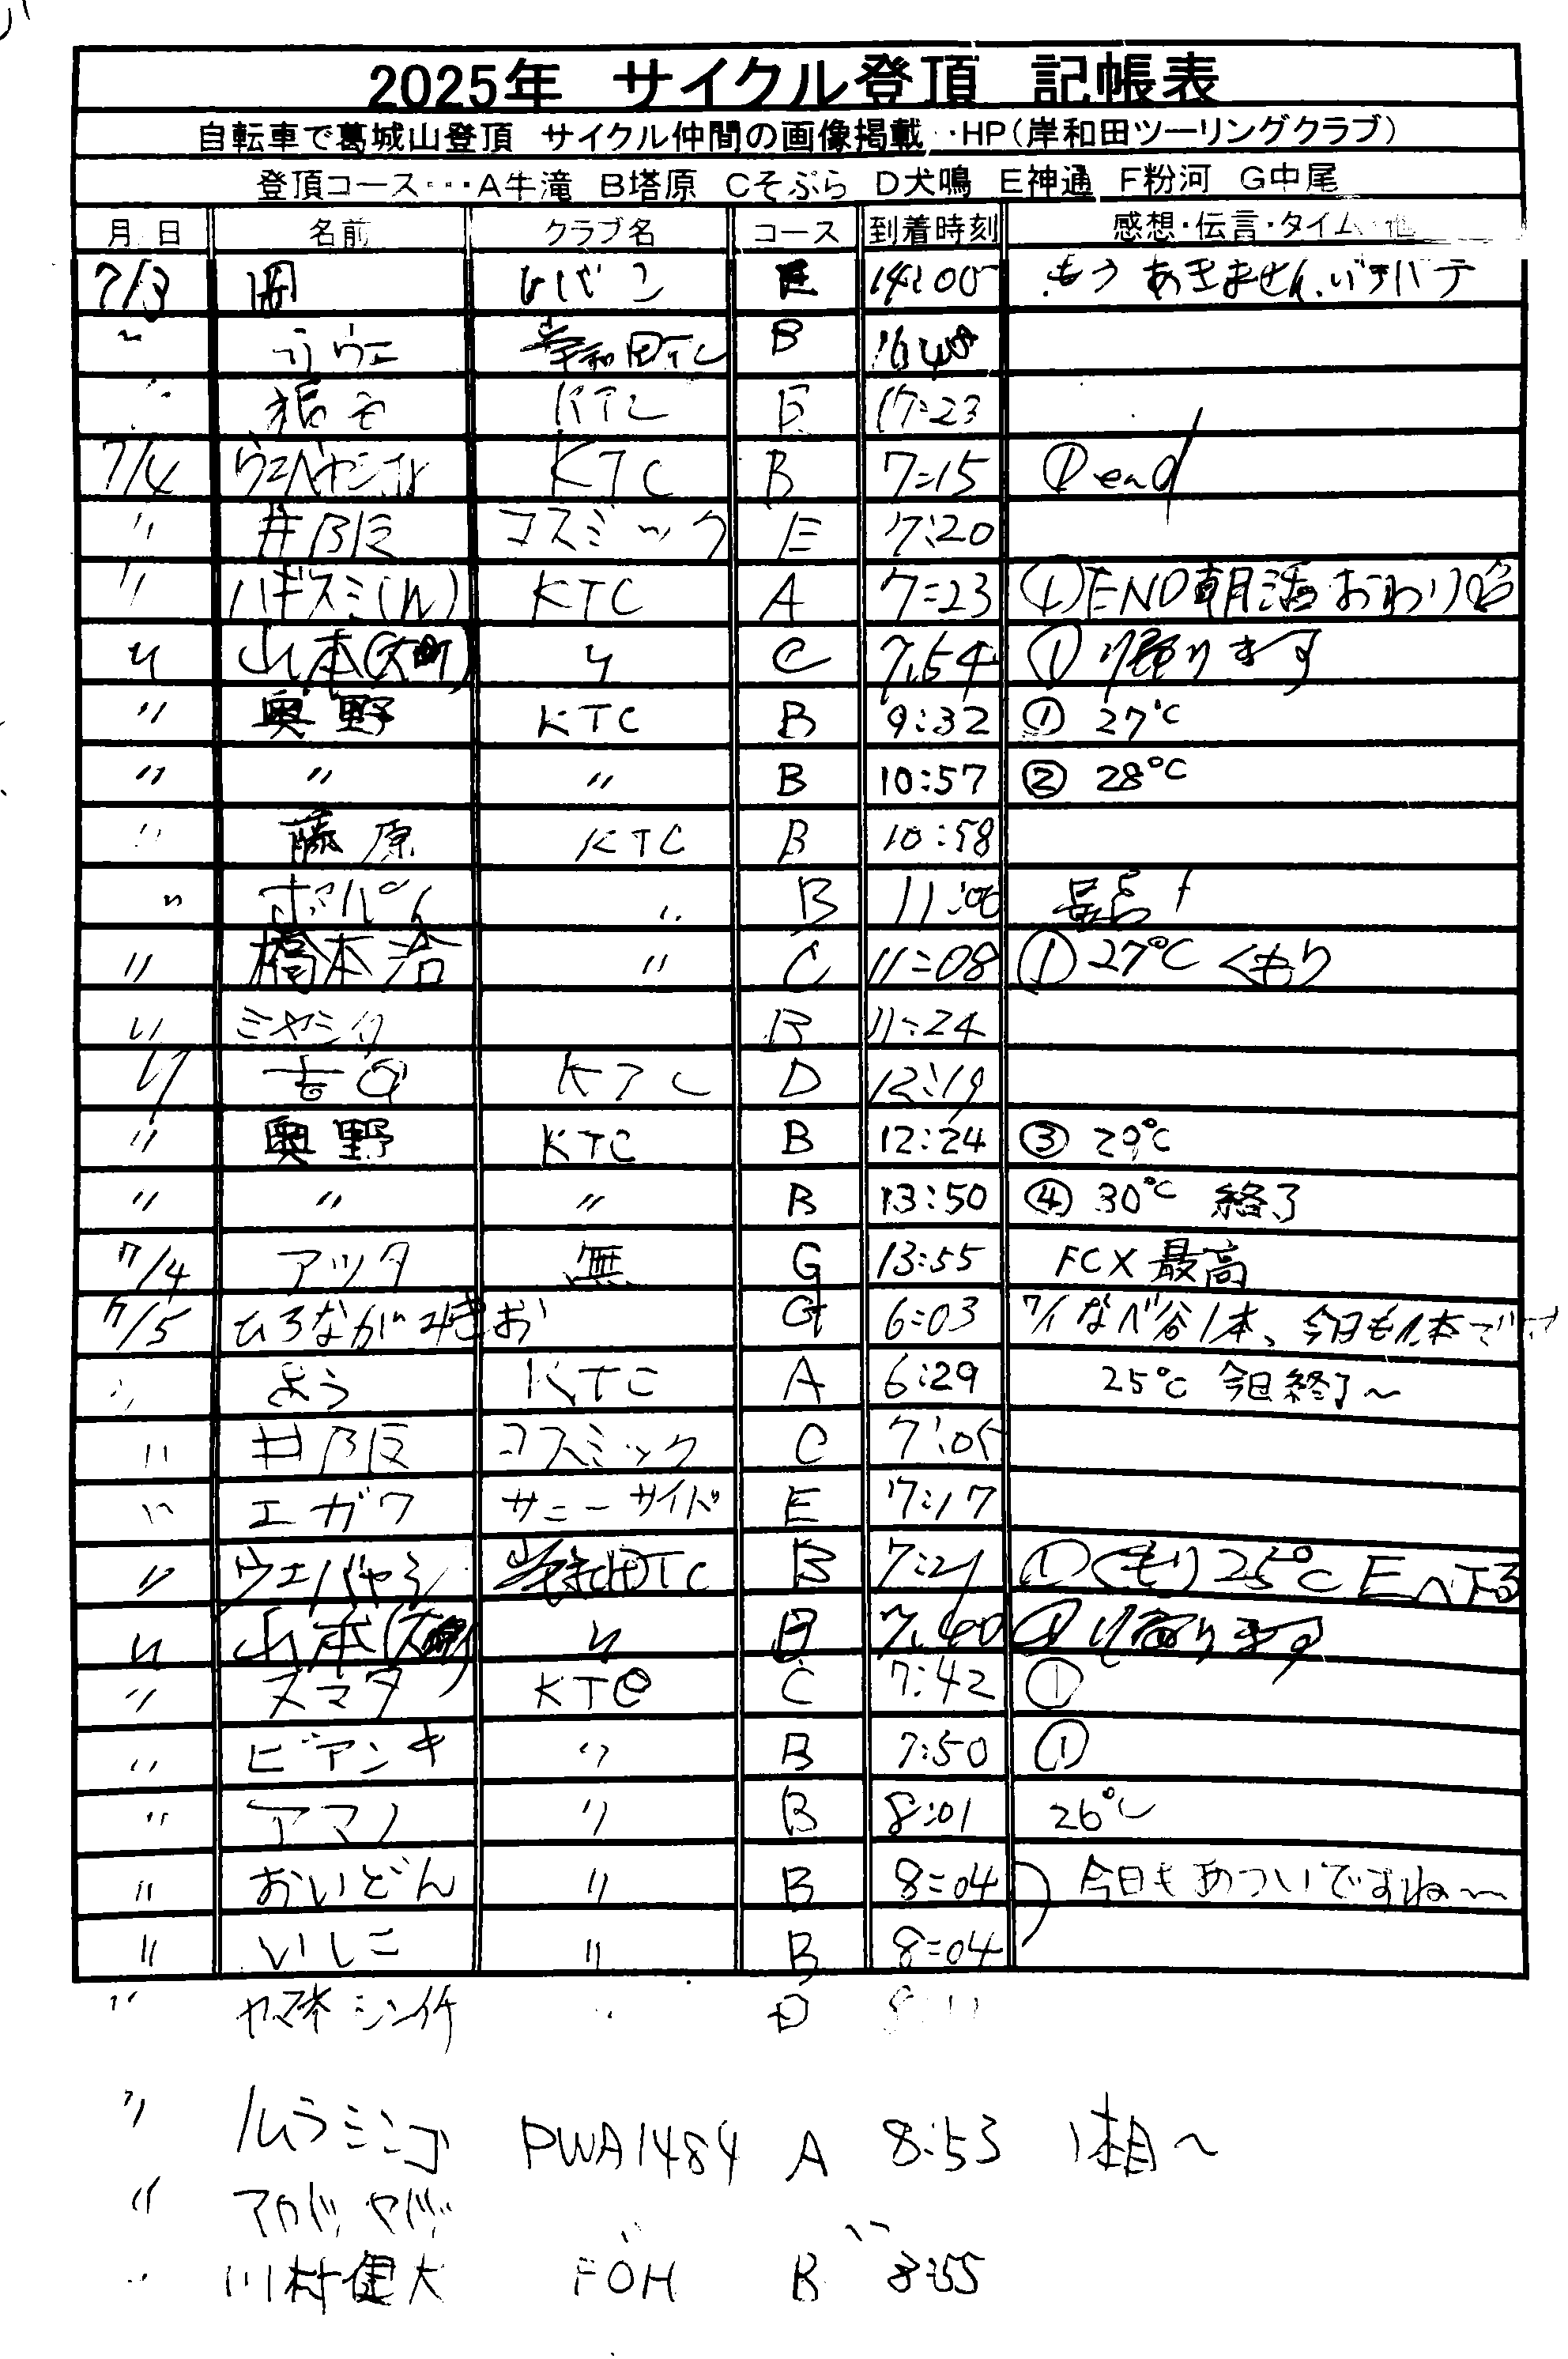 2025年 サイクル登頂 記帳表
自転車で葛城山登頂 サイクル仲間の画像掲載‥HP(岸和田ツーリングクラブ)
登頂コース‥‥A牛滝 B塔原 Cそぶら D犬鳴 E神通 F粉河 G中尾
月 日 名前 クラブ名 コース 到着時刻 感想・伝言・タイム・他
7/3 E 14:00 もう あきません.
〃 岸和田TC B 16:48
KTC E 17:23
7/4 KTC B 7:15 ① end
〃 井阪 コスミック E 7:20
〃 ハギスミ KTC A 7:23 ① END 朝活おわり
〃 山本 〃 C 7.54 ① 帰ります
〃 奥野 KTC B 9:32 ① 27℃
〃 〃 〃 B 10:57 ② 28℃
〃 藤原 KTC B 10:58
〃 〃 B 最高!
〃 橋本 〃 C 11:08 ① 27℃ くもり
〃 B 11:24
〃 KTC D 12:19
〃 奥野 KTC B 12:24 ③ 29℃
〃 〃 〃 B 13:50 ④ 30℃ 終了
7/4 アツタ 無 G 13:55 FCX 最高
7/5 ひろながみきお G 6:03 7/1なべ谷1本、今日も1本です
〃 よう KTC A 6:29 25℃ 今日終了〜
〃 井阪 コスミック C 7:05
〃 エガワ サニーサイド E 7:17
〃 ウエバヤシ 岸和田TC B 7:21 ① くもり 25℃ Eへ下る
〃 山本 〃 B 7.40 ① 帰ります
〃 ヌマタ KTC C 7:42 ①
〃 ビアンキ 〃 B 7:50 ①
〃 アマノ 〃 B 8:01 26℃
〃 おいどん 〃 B 8:04 今日もあついですね〜
〃 いしこ 〃 B 8:04
〃 〃 D
〃 PWA1484 A 8:53 1本目〜
〃 〃 〃
〃 川村健大 FOH B 8:55